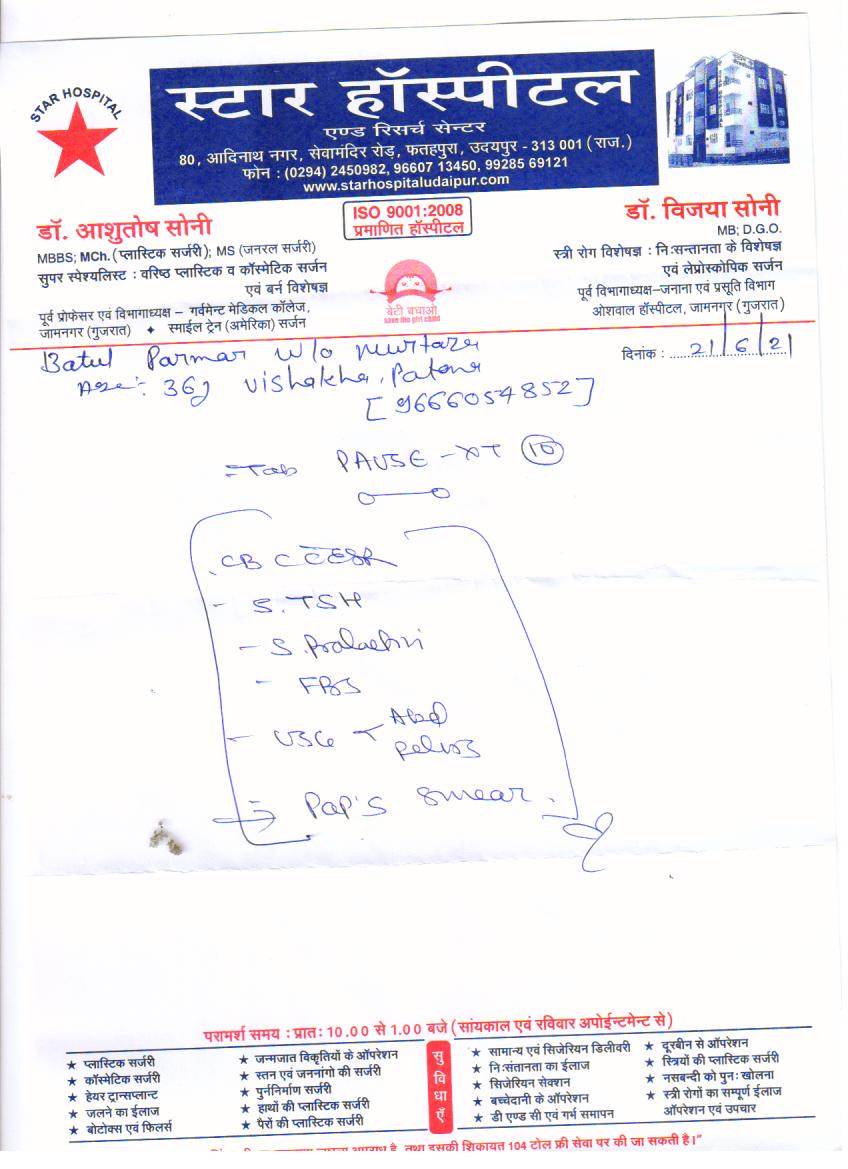 STAR HOSPITAL
स्टार हॉस्पीटल
एण्ड रिसर्च सेन्टर
80, आदिनाथ नगर, सेवामंदिर रोड़, फतहपुरा, उदयपुर - 313 001 (राज.)
फोन : (0294) 2450982, 96607 13450, 99285 69121
www.starhospitaludaipur.com
ISO 9001:2008
प्रमाणित हॉस्पीटल
डॉ. आशुतोष सोनी
MBBS; MCh. (प्लास्टिक सर्जरी); MS (जनरल सर्जरी)
सुपर स्पेश्यलिस्ट : वरिष्ठ प्लास्टिक व कॉस्मेटिक सर्जन
एवं बर्न विशेषज्ञ
पूर्व प्रोफेसर एवं विभागाध्यक्ष – गर्वमेन्ट मेडिकल कॉलेज,
जामनगर (गुजरात) ✦ स्माईल ट्रेन (अमेरिका) सर्जन
बेटी बचाओ
save the girl child
डॉ. विजया सोनी
MB; D.G.O.
स्त्री रोग विशेषज्ञ : निःसन्तानता के विशेषज्ञ
एवं लेप्रोस्कोपिक सर्जन
पूर्व विभागाध्यक्ष–जनाना एवं प्रसूति विभाग
ओशवाल हॉस्पीटल, जामनगर (गुजरात)
दिनांक : 21/6/21
Batul Parmar w/o Murtaza
Age:- 36y Vishakha, Patana
[9666054852]
Tab PAUSE-XT 10
CBC ESR
- S.TSH
- S.Prolactin
- FBS
- USG Abd
Pelvis
Pap's smear.
परामर्श समय : प्रातः 10.00 से 1.00 बजे (सांयकाल एवं रविवार अपोईन्टमेन्ट से)
★ प्लास्टिक सर्जरी
★ कॉस्मेटिक सर्जरी
★ हेयर ट्रान्सप्लान्ट
★ जलने का ईलाज
★ बोटोक्स एवं फिलर्स
★ जन्मजात विकृतियों के ऑपरेशन
★ स्तन एवं जननांगो की सर्जरी
★ पुर्ननिर्माण सर्जरी
★ हाथों की प्लास्टिक सर्जरी
★ पैरों की प्लास्टिक सर्जरी
सुविधाएँ
★ सामान्य एवं सिजेरियन डिलीवरी
★ निःसंतानता का ईलाज
★ सिजेरियन सेक्शन
★ बच्चेदानी के ऑपरेशन
★ डी एण्ड सी एवं गर्भ समापन
★ दूरबीन से ऑपरेशन
★ स्त्रियों की प्लास्टिक सर्जरी
★ नसबन्दी को पुनः खोलना
★ स्त्री रोगों का सम्पूर्ण ईलाज
ऑपरेशन एवं उपचार
अपराध है, तथा इसकी शिकायत 104 टोल फ्री सेवा पर की जा सकती है।"